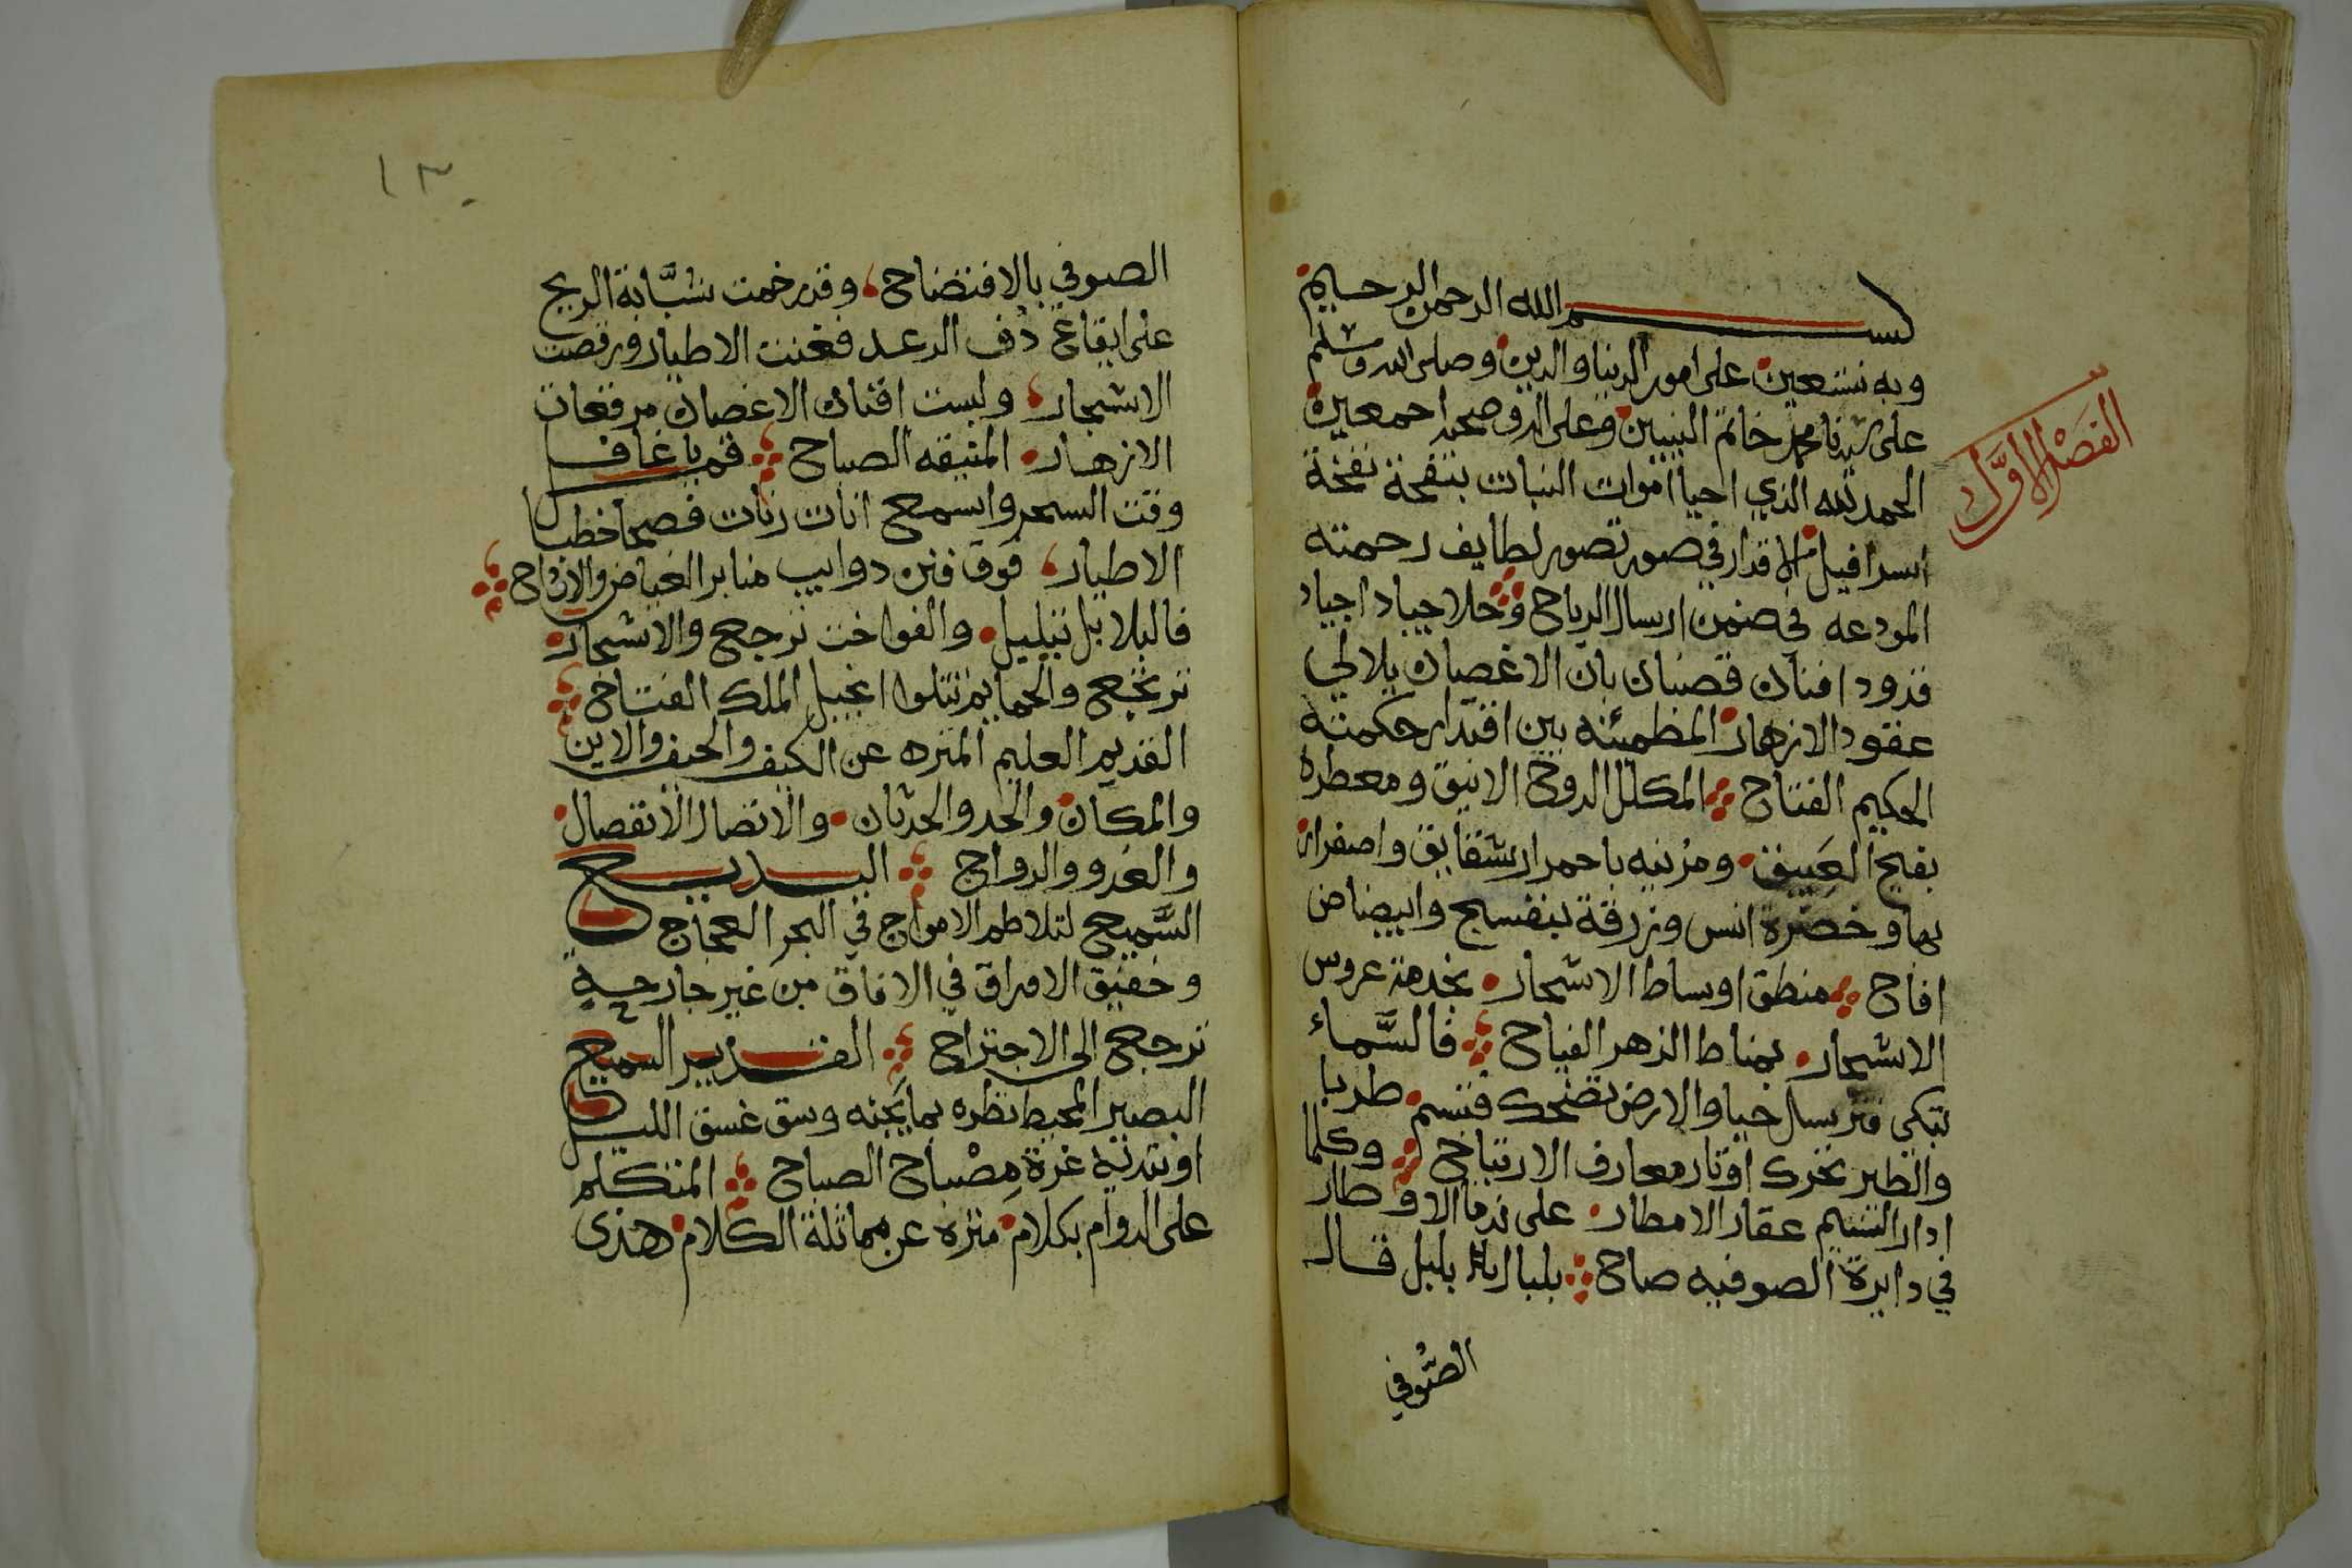 الفصل الاول
بسم الله الرحمن الرحيم
وبه نستعين على امور الدنيا والدين وصلى الله وسلم
على سيدنا محمد خاتم النبيين وعلى اله وصحبه اجمعين
الحمد لله الذي احيا اموات النبات بنفحة نفخة
اسرافيل الاقدار في صور تصور لطايف رحمته
المودعه في ضمن ارسال الرياح وحلا جياد اجياد
قدود افنان قضبان بان الاغصان بلالي
عقود الازهار المطمئنه بين اقتدار حكمته
الحكيم الفتاح المكلل الدوح الانيق ومعطره
بفيح العبيق ومزينه باحمرار شقايق واصفرار
بها وخضرة انس وزرقة بنفسج وابيضاض
اقاح منطق اوساط الاشجار بخدمة عروس
الاشجار بمناط الزهر الفياح فالسماء
تبكي فترسل حيا والارض تضحك فتبسم طربا
والطير تحرك اوتار معارف الارتياح وكلما
ادار النسيم عقار الامطار على ندما الاوطار
في دايرة الصوفيه صاح بلبال بال بلبل قال
الصوفي
١٣٠
الصوفي بالافتضاح وقد رخمت شبابة الريح
على ايقاع دف الرعد فغنت الاطيار ورقصت
الاشجار ولبست افنان الاغصان مرقعات
الازهار المتيقه الصباح قم يا غافل
وقت السحر واسمع انات رنات فصحا خطبا
الاطيار فوق فنن دوايب منابر الغياض والادواح
فالبلابل تبلبل والفواخت ترجع والاشجار
ترتجع والحمايم تتلوا انجيل الملك الفتاح
القديم العليم المنزه عن الكيف والحيف والاين
والمكان والحد والحدثان والاتصال الانفصال
والغدو والرواح البديع
السميع لتلاطم الامواج في البحر العجاج
وخفيق الاوراق في الافاق من غير جارحه
ترجع الى الاجتراح القدير السميع
البصير المحيط نظره بما يجنه وسق غسق الليل
او تبديه غرة مصباح الصباح المتكلم
على الدوام بكلام منزه عن مماثلة الكلام هدى